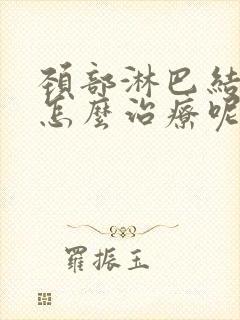 頸部淋巴結
怎麼治療呢
羅振玉